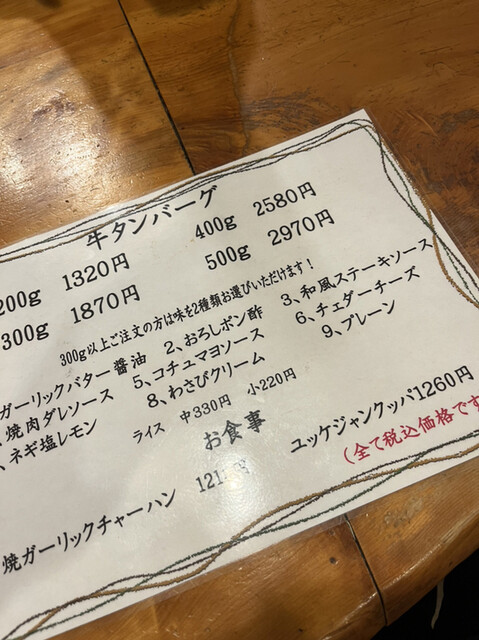 牛タンバーグ
200g 1320円 400g 2580円
300g 1870円 500g 2970円
300g以上ご注文の方は味を2種類お選びいただけます!
ガーリックバター醤油 2、おろしポン酢 3、和風ステーキソース
焼肉ダレソース 5、コチュマヨソース 6、チェダーチーズ
、ネギ塩レモン 8、わさびクリーム 9、プレーン
ライス 中330円 小220円
お食事
焼ガーリックチャーハン ユッケジャンクッパ1260円
(全て税込価格です